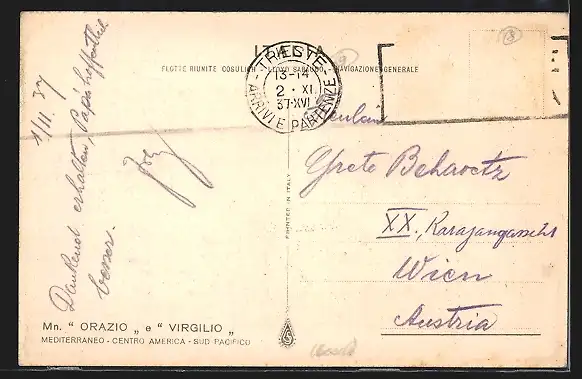 1/11 37
Dankend erhalten, Papá hoffentlich
besser.
ITALIA
FLOTTE RIUNITE COSULICH - LLOYD SABAUDO - NAVIGAZIONE GENERALE
TRIESTE
13-14
2 · XI
37·XVI
ARRIVI E PARTENZE
18
Grete
XX.,
Wien
Austria
PRINTED IN ITALY
Mn. " ORAZIO „ e " VIRGILIO „
MEDITERRANEO - CENTRO AMERICA - SUD PACIFICO